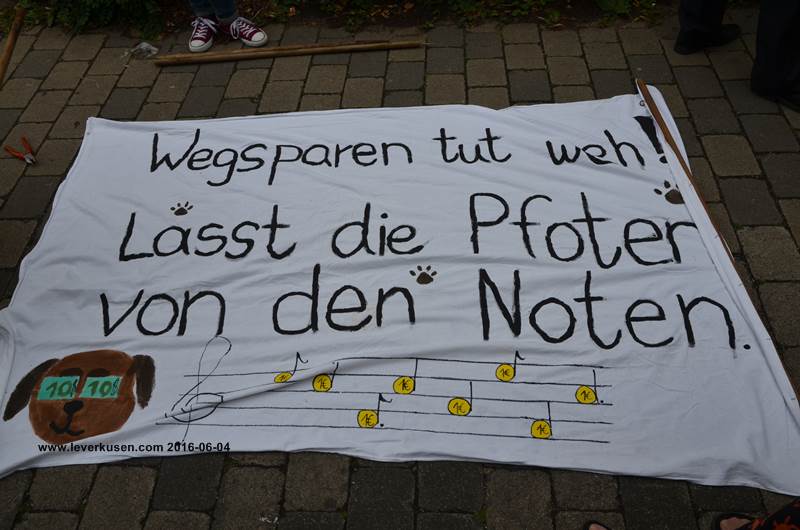 Wegsparen tut weh!
Lasst die Pfoten
von den Noten.
100 100
1€ 1€ 1€ 1€ 1€ 1€ 1€ 1€
www.leverkusen.com 2016-06-04